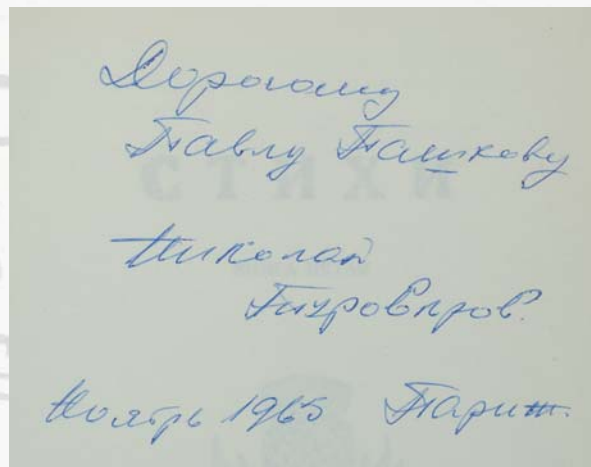 Дорогому
Павлу Пашкову
СТИХИ
Николай
Туроверов.
Ноябрь 1965 Париж.